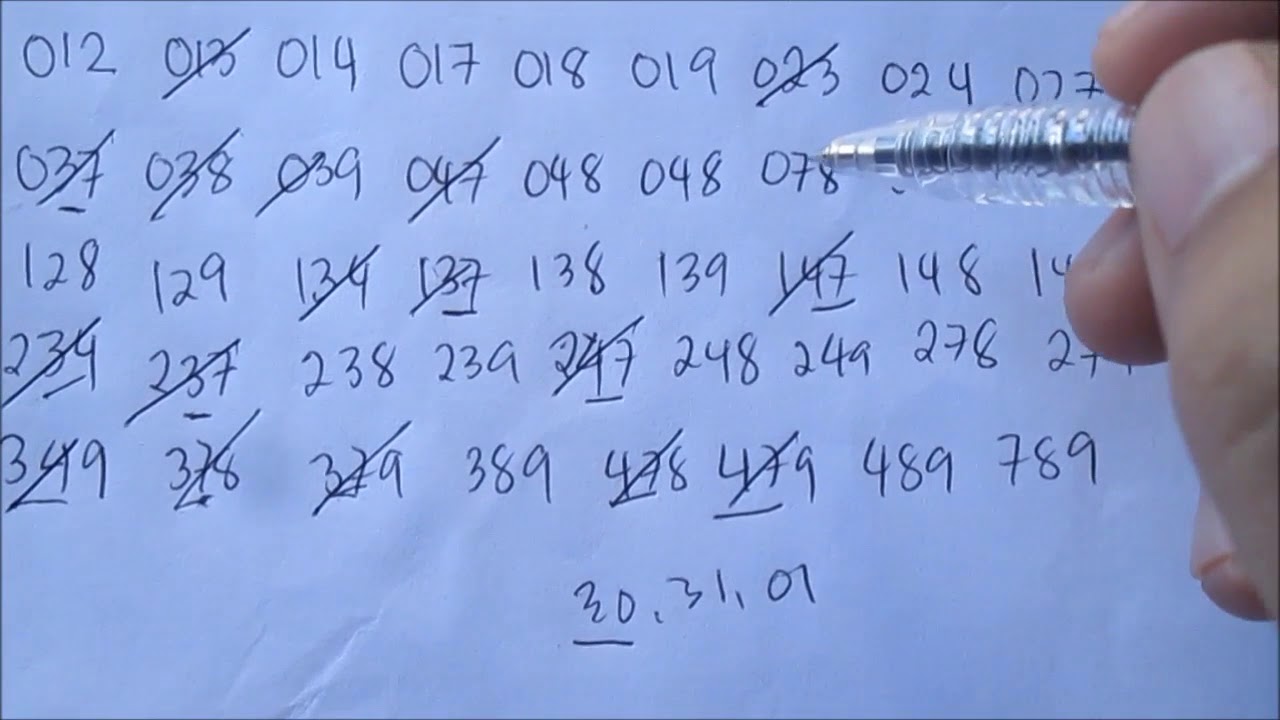 012 013 014 017 018 019 023 024 027
037 038 039 047 048 048 078
128 129 134 137 138 139 147 148
234 237 238 239 247 248 249 278
349 378 379 389 478 479 489 789
30. 31. 01